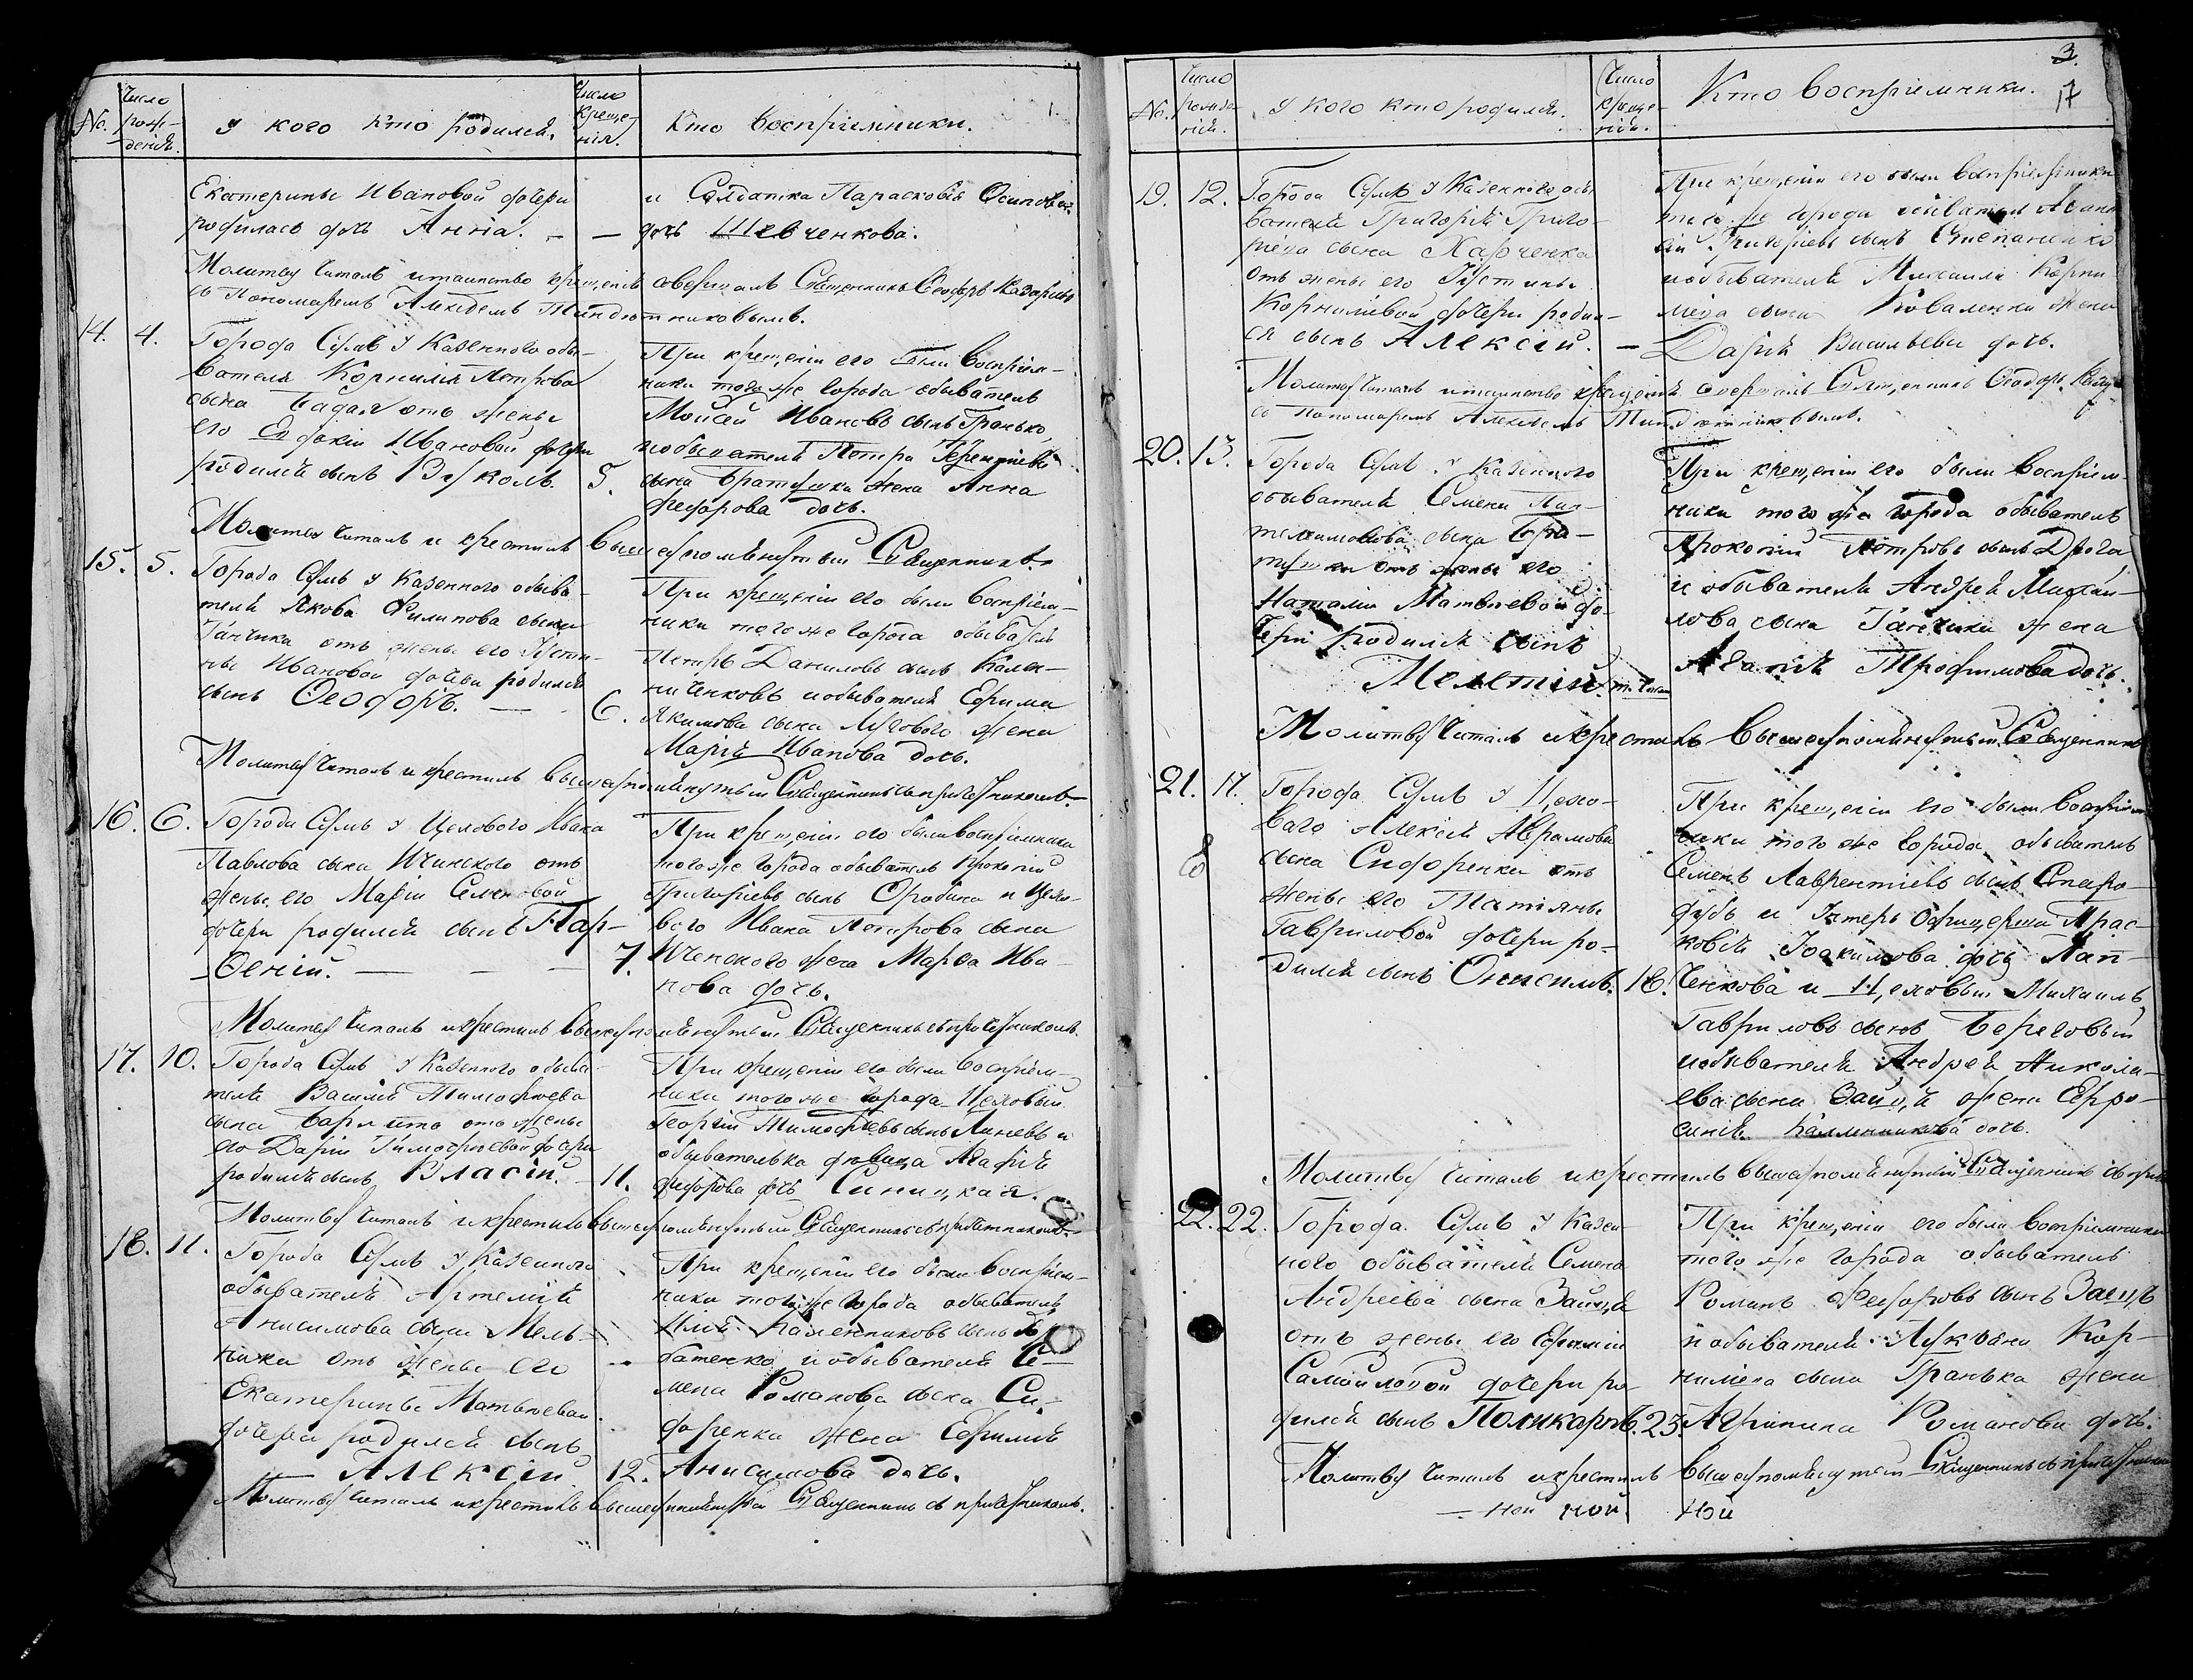 No.
Число рож-
денія.
У кого кто родился.
Число
креще-
нія.
Кто воспріемники.
Екатерины Ивановой дочери
родилась дочь Анна. — —
и Солдатка Парасковія Осипова
дочь Шевченкова.
Молитву читалъ и таинство крещенія совершалъ Священникъ Ѳеодоръ
съ Пономаремъ
14. 4.
Города Сумъ у Казеннаго обы-
вателя Корнилія Петрова
сына отъ жены
его Евдокіи Ивановой дочери
родился сынъ Вуколъ. 5.
При крещеніи его были воспріем-
ники того же города обыватель
Моисей Ивановъ сынъ Гранько,
и обывателя Петра Терентіева
сына Братушки жена Анна
Федорова дочь.
Молитву читалъ и крестилъ вышеупомянутый Священникъ.
15. 5.
Города Сумъ у Казеннаго обыва-
теля Якова Филипова сына
Ганчика отъ жены его Устин-
ньи Ивановой дочери родился
сынъ Ѳеодоръ. — 6.
При крещеніи его были воспріем-
ники того же города обыватель
Петръ Даниловъ сынъ Кален-
ниченковъ и обывателя Ефима
Якимова сына Лугового жена
Марія Иванова дочь.
Молитву читалъ и крестилъ вышеупомянутый Священникъ съ причетникомъ.
16. 6.
Города Сумъ у Цехового Ивана
Павлова сына Ичинского отъ
жены его Маріи Семеновой
дочери родился сынъ Пар-
ѳеній. — — — 7.
При крещеніи его были воспріемники
того же города обыватель Прокопій
Григоріевъ сынъ и Цехо-
вого Ивана Петрова сына
Иченского жена Марѳа Ива-
нова дочь.
Молитву читалъ и крестилъ вышеупомянутый Священникъ съ причетникомъ.
17. 10.
Города Сумъ у Казенного обыва-
теля Василія Тимофѣева
сына отъ жены
его Даріи Тимофѣевой дочери
родился сынъ Власій. — 11.
При крещеніи его были воспріем-
ники того же города Цеховый
Георгій Тимофѣевъ сынъ Линевъ и
обывателька дѣвица Агафія
Федорова дочь Синицкая.
Молитву читалъ и крестилъ вышеупомянутый Священникъ съ причетникомъ.
18. 11.
Города Сумъ у Казенного
обывателя Артемія
Анисимова сына Мель-
ника отъ жены его
Екатерины Матвѣевой
дочери родился сынъ
— Алексій 12.
При крещеніи его были воспріем-
ники того же города обыватель
Илья Каленниковъ сынъ
батенко и обывателя Се-
мена Романова сына Си-
доренка жена Ефимія
Анисимова дочь.
Молитву читалъ и крестилъ вышеупомянутый Священникъ съ причетникомъ.
3.
17
No.
Число
рожде-
нія.
У кого кто родился.
Число
креще-
нія.
Кто воспріемники.
19. 12.
Города Сумъ у Казенного обы-
вателя Григорія Григо-
ріева сына Харченка
отъ жены его Устиньи
Корниліевой дочери родил-
ся сынъ Алексій. —
При крещеніи его были воспріемники
того же города обыватель
Григоріевъ сынъ Степаненко
и обывателя Михаила Корни-
ліева сына Коваленка жена
Дарія Васильева дочь.
Молитву читалъ и таинство крещенія совершалъ Священникъ Ѳеодоръ
съ Пономаремъ
20. 13.
Города Сумъ у Казенного
обывателя Семена Пан-
телимонова сына Бра-
тушки отъ жены его
Наталіи Матвѣевой до-
чери родился сынъ
Мелетій.
При крещеніи его были воспріем-
ники того же города обыватель
Прокопій Петровъ сынъ
и обывателя Андрея Михай-
лова сына Ганчика жена
Агафія Трофимова дочь.
Молитву читалъ и крестилъ вышеупомянутый Священникъ
21. 17.
Города Сумъ у Цехо-
ваго Алексія Аврамова
сына Сидоренка отъ
жены его Татіяны
Гавриловой дочери ро-
дился сынъ Онисимъ. 18.
При крещеніи его были воспріем-
ники того же города обыватель
Семенъ Лаврентіевъ сынъ Старо-
дубъ и Унтеръ Офицерша Прас-
ковія Іоакимова дочь Лап-
ченкова и Цеховый Михаилъ
Гавриловъ сынъ Береговый
и обывателя Андрея Никола-
ева сына Зайца жена Ефро-
синія Каленникова дочь.
Молитву читалъ и крестилъ вышеупомянутый Священникъ съ
22. 22.
Города Сумъ у Казен-
ного обывателя Семена
Андреева сына Зайца
отъ жены его Ефиміи
Самойловой дочери ро-
дился сынъ Поликарпъ. 23.
При крещеніи его были воспріемники
того же города обыватель
Романъ Федоровъ сынъ Заецъ
и обывателя Лукіана Кор-
нилова сына Гранька жена
Агрипина Романова дочь.
Молитву читалъ и крестилъ вышеупомянутый Священникъ съ причетникомъ